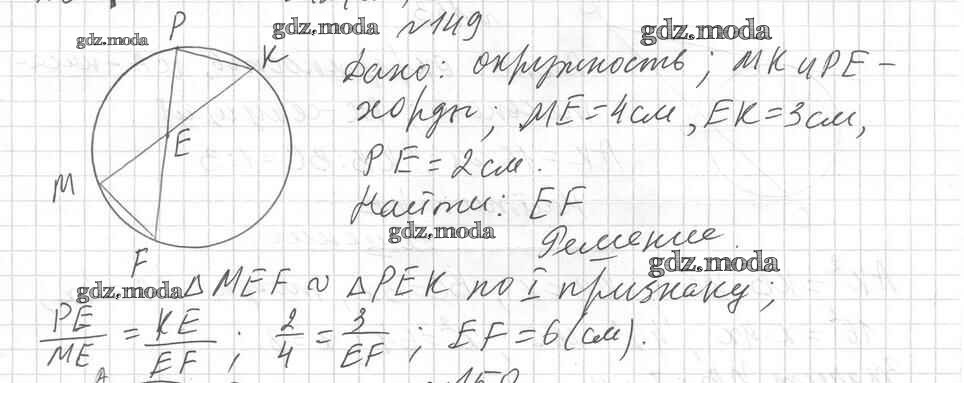 gdz.moda gdz.moda №149 gdz.moda
P
K
E
M
F
Дано: окружность; MK и PE –
хорды; ME = 4 см, EK = 3 см,
PE = 2 см.
Найти: EF
gdz.moda
Решение.
gdz.moda gdz.moda
△MEF ∾ △PEK по I признаку;
PE/ME = KE/EF; 2/4 = 3/EF; EF = 6 (см).